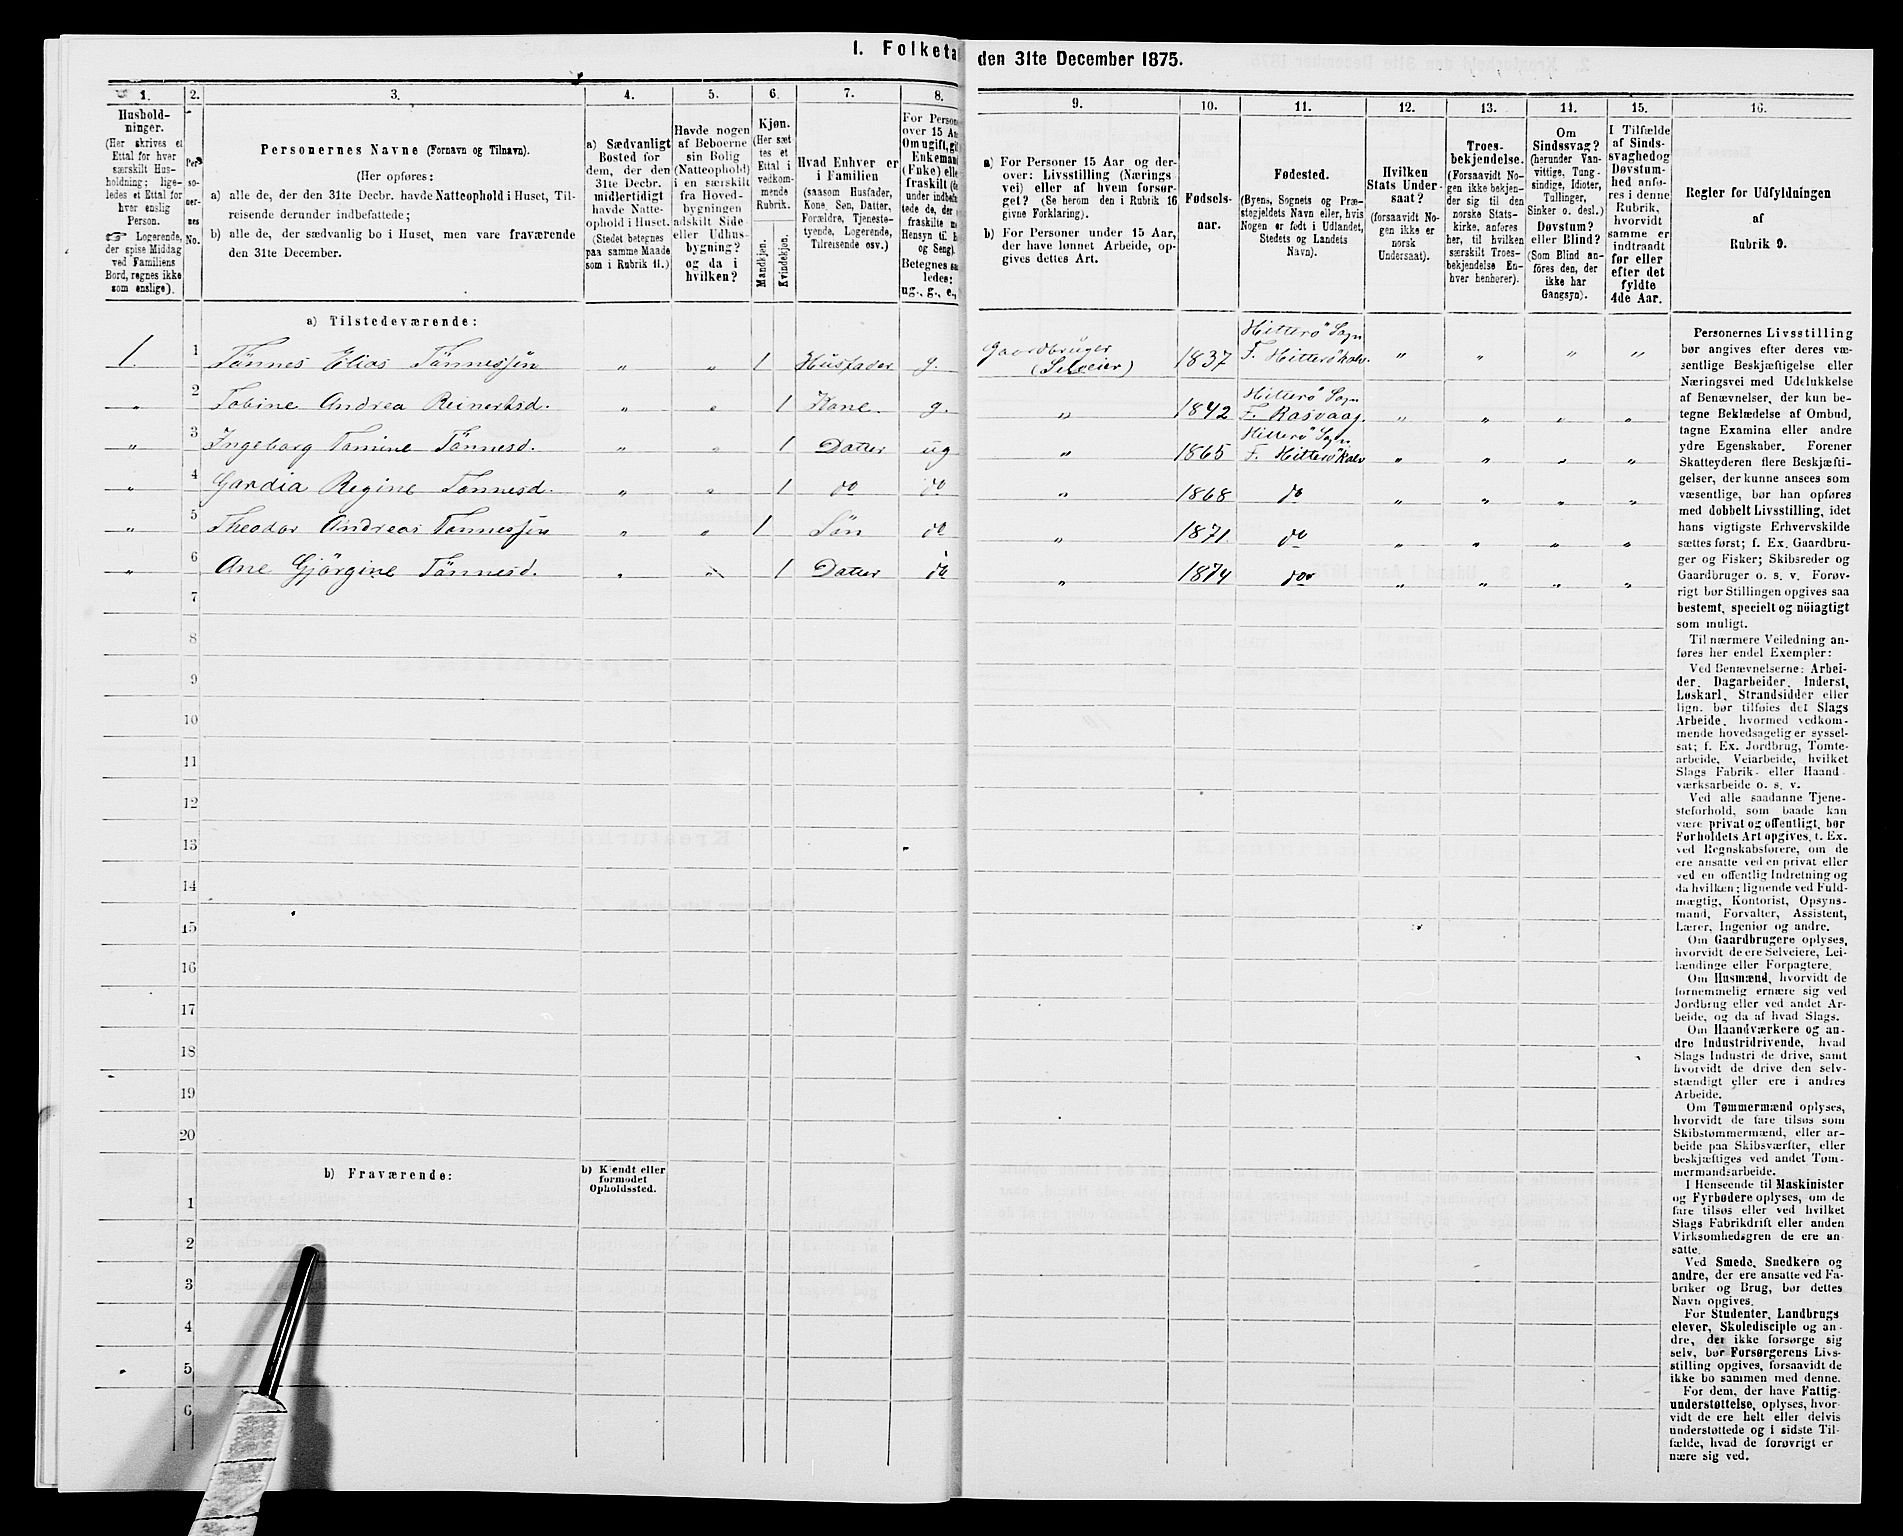 I. Folketa
den 31te December 1875.
1. 2. 3. 4. 5. 6. 7. 8.
9. 10. 11. 12. 13. 14. 15. 16.
Hushold-
ninger.
(Her skrives et
Ettal for hver
særskilt Hus-
holdning; lige-
ledes et Ettal for
hver enslig
Person.
☞ Logerende,
der spise Middag
ved Familiens
Bord, regnes ikke
som enslige).
Per-
so-
ner-
nes
No.
Personernes Navne (Fornavn og Tilnavn).
(Her opføres:
a) alle de, der den 31te Decbr. havde Natteophold i Huset, Til-
reisende derunder indbefattede;
b) alle de, der sædvanlig bo i Huset, men vare fraværende
den 31te December.
a) Sædvanligt
Bosted for
dem, der den
31te Decbr.
midlertidigt
havde Natte-
ophold i Huset.
(Stedet betegnes
paa samme Maade
som i Rubrik 11.)
Havde nogen
af Beboerne
sin Bolig
(Natteophold)
i en særskilt
fra Hoved-
bygningen
adskilt Side-
eller Udhus-
bygning?
og da i
hvilken?
Kjøn.
(Her sæt-
tes et
Ettal i
vedkom-
mende
Rubrik.
Mandkjøn.
Kvindekjøn.
Hvad Enhver er
i Familien
(saasom Husfader,
Kone, Søn, Datter,
Forældre, Tjeneste-
tyende, Logerende,
Tilreisende osv.)
For Person
over 15 Aa
Om ugift, gif
Enkemand
(Enke) elle
fraskilt (de
under indbefat
tede de, der e
fraskilte m
Hensyn til B
og Seng).
Betegnes saa
ledes:
ug., g., e.,
a) For Personer 15 Aar og der-
over: Livsstilling (Nærings
vei) eller af hvem forsør-
get? (Se herom den i Rubrik 16
givne Forklaring).
b) For Personer under 15 Aar,
der have lønnet Arbeide, op-
gives dettes Art.
Fødsels-
aar.
Fødested.
(Byens, Sognets og Præ-
stegjeldets Navn eller, hvis
Nogen er født i Udlandet,
Stedets og Landets
Navn).
Hvilken
Stats Under-
saat?
(forsaavidt No-
gen ikke er
norsk
Undersaat).
Troes-
bekjendelse.
(Forsaavidt No-
gen ikke bekjen-
der sig til den
norske Stats-
kirke, anføres
her, til hvilken
særskilt Troes-
bekjendelse En-
hver henhører).
Om
Sindssvag?
(herunder Van-
vittige, Tung-
sindige, Idioter,
Tullinger,
Sinker o. desl.)
Døvstum?
eller Blind?
(Som Blind an-
føres den, der
ikke har
Gangsyn).
I Tilfælde
af Sinds-
svaghed og
Døvstum-
hed anfø-
res i denne
Rubrik,
hvorvidt
samme er
indtraadt
før eller
efter det
fyldte
4de Aar.
Regler for Udfyldningen
af
Rubrik 9.
a) Tilstedeværende:
1. 1 Tönnes Elias Tönnessen „ „ 1 Husfader g. Gaardbruger (Selveier) 1837 Hitterö Sogn F. Hitterökalv. „ „ „ „
„ 2 Tobine Andrea Reinertsd. „ „ 1 Kone g. „ 1842 Hitterö Sogn F. Rasvaag. „ „ „ „
„ 3 Ingeborg Tomine Tönnesd. „ „ 1 Datter ug „ 1865 Hitterö Sogn F. Hitterökalv „ „ „ „
„ 4 Gardia Regine Tönnesd. „ „ 1 do do „ 1868 do „ „ „ „
„ 5 Theodor Andreas Tönnessen „ „ 1 Sön do „ 1871. do „ „ „ „
„ 6 Ane Gjörgine Tönnesd. „ „ 1 Datter do „ 1874 do „ „ „ „
7
8
9
10
11
12
13
14
15
16
17
18
19
20
b) Fraværende:
b) Kjendt eller
formodet
Opholdssted.
1
2
3
4
5
6
Personernes Livsstilling
bør angives efter deres væ-
sentlige Beskjæftigelse eller
Næringsvei med Udelukkelse
af Benævnelser, der kun be-
tegne Beklædelse af Ombud,
tagne Examina eller andre
ydre Egenskaber. Forener
Skatteyderen flere Beskjæfti-
gelser, der kunne ansees som
væsentlige, bør han opføres
med dobbelt Livsstilling, idet
hans vigtigste Erhvervskilde
sættes først; f. Ex. Gaardbru-
ger og Fisker; Skibsreder og
Gaardbruger o. s. v. Forøv-
rigt bør Stillingen opgives saa
bestemt, specielt og nöiagtigt
som muligt.
Til nærmere Veiledning an-
føres her endel Exempler:
Ved Benævnelserne: Arbei-
der, Dagarbeider, Inderst,
Løskarl, Strandsidder eller
lign. bør tilføies det Slags
Arbeide, hvormed vedkom-
mende hovedsagelig er syssel-
sat; f. Ex. Jordbrug, Tomte-
arbeide, Veiarbeide, hvilket
Slags Fabrik- eller Haand-
værksarbeide o. s. v.
Ved alle saadanne Tjene-
steforhold, som baade kan
være privat og offentligt, bør
Forholdets Art opgives, f. Ex.
ved Regnskabsførere, om de
ere ansatte ved en privat eller
ved en offentlig Indretning og
da hvilken; lignende ved Fuld-
mægtig, Kontorist, Opsyns-
mand, Forvalter, Assistent,
Lærer, Ingeniør og andre.
Om Gaardbrugere oplyses,
hvorvidt de ere Selveiere, Lei-
lændinge eller Forpagtere.
Om Husmænd, hvorvidt de
fornemmelig ernære sig ved
Jordbrug eller ved andet Ar-
beide, og da af hvad Slags.
Om Haandværkere og an-
dre Industridrivende, hvad
Slags Industri de drive, samt
hvorvidt de drive den selv-
stændigt eller ere i andres
Arbeide.
Om Tømmermænd oplyses,
hvorvidt de fare tilsøs som
Skibstømmermænd, eller ar-
beide paa Skibsværfter, eller
beskjæftiges ved andet Tøm-
mermandsarbeide.
I Henseende til Maskinister
og Fyrbødere oplyses, om de
fare tilsøs eller ved hvilket
Slags Fabrikdrift eller anden
Virksomhedsgren de ere an-
satte.
Ved Smede, Snedkere og
andre, der ere ansatte ved Fa-
briker og Brug, bør dettes
Navn opgives.
For Studenter, Landbrugs
elever, Skoledisciple og an-
dre, der ikke forsørge sig
selv, bør Forsørgerens Livs-
stilling opgives, forsaavidt de
ikke bo sammen med denne.
For dem, der have Fattig-
understøttelse, oplyses, hvor-
vidt de ere helt eller delvis
understøttede og i sidste Til-
fælde, hvad de forøvrigt er
nære sig ved.